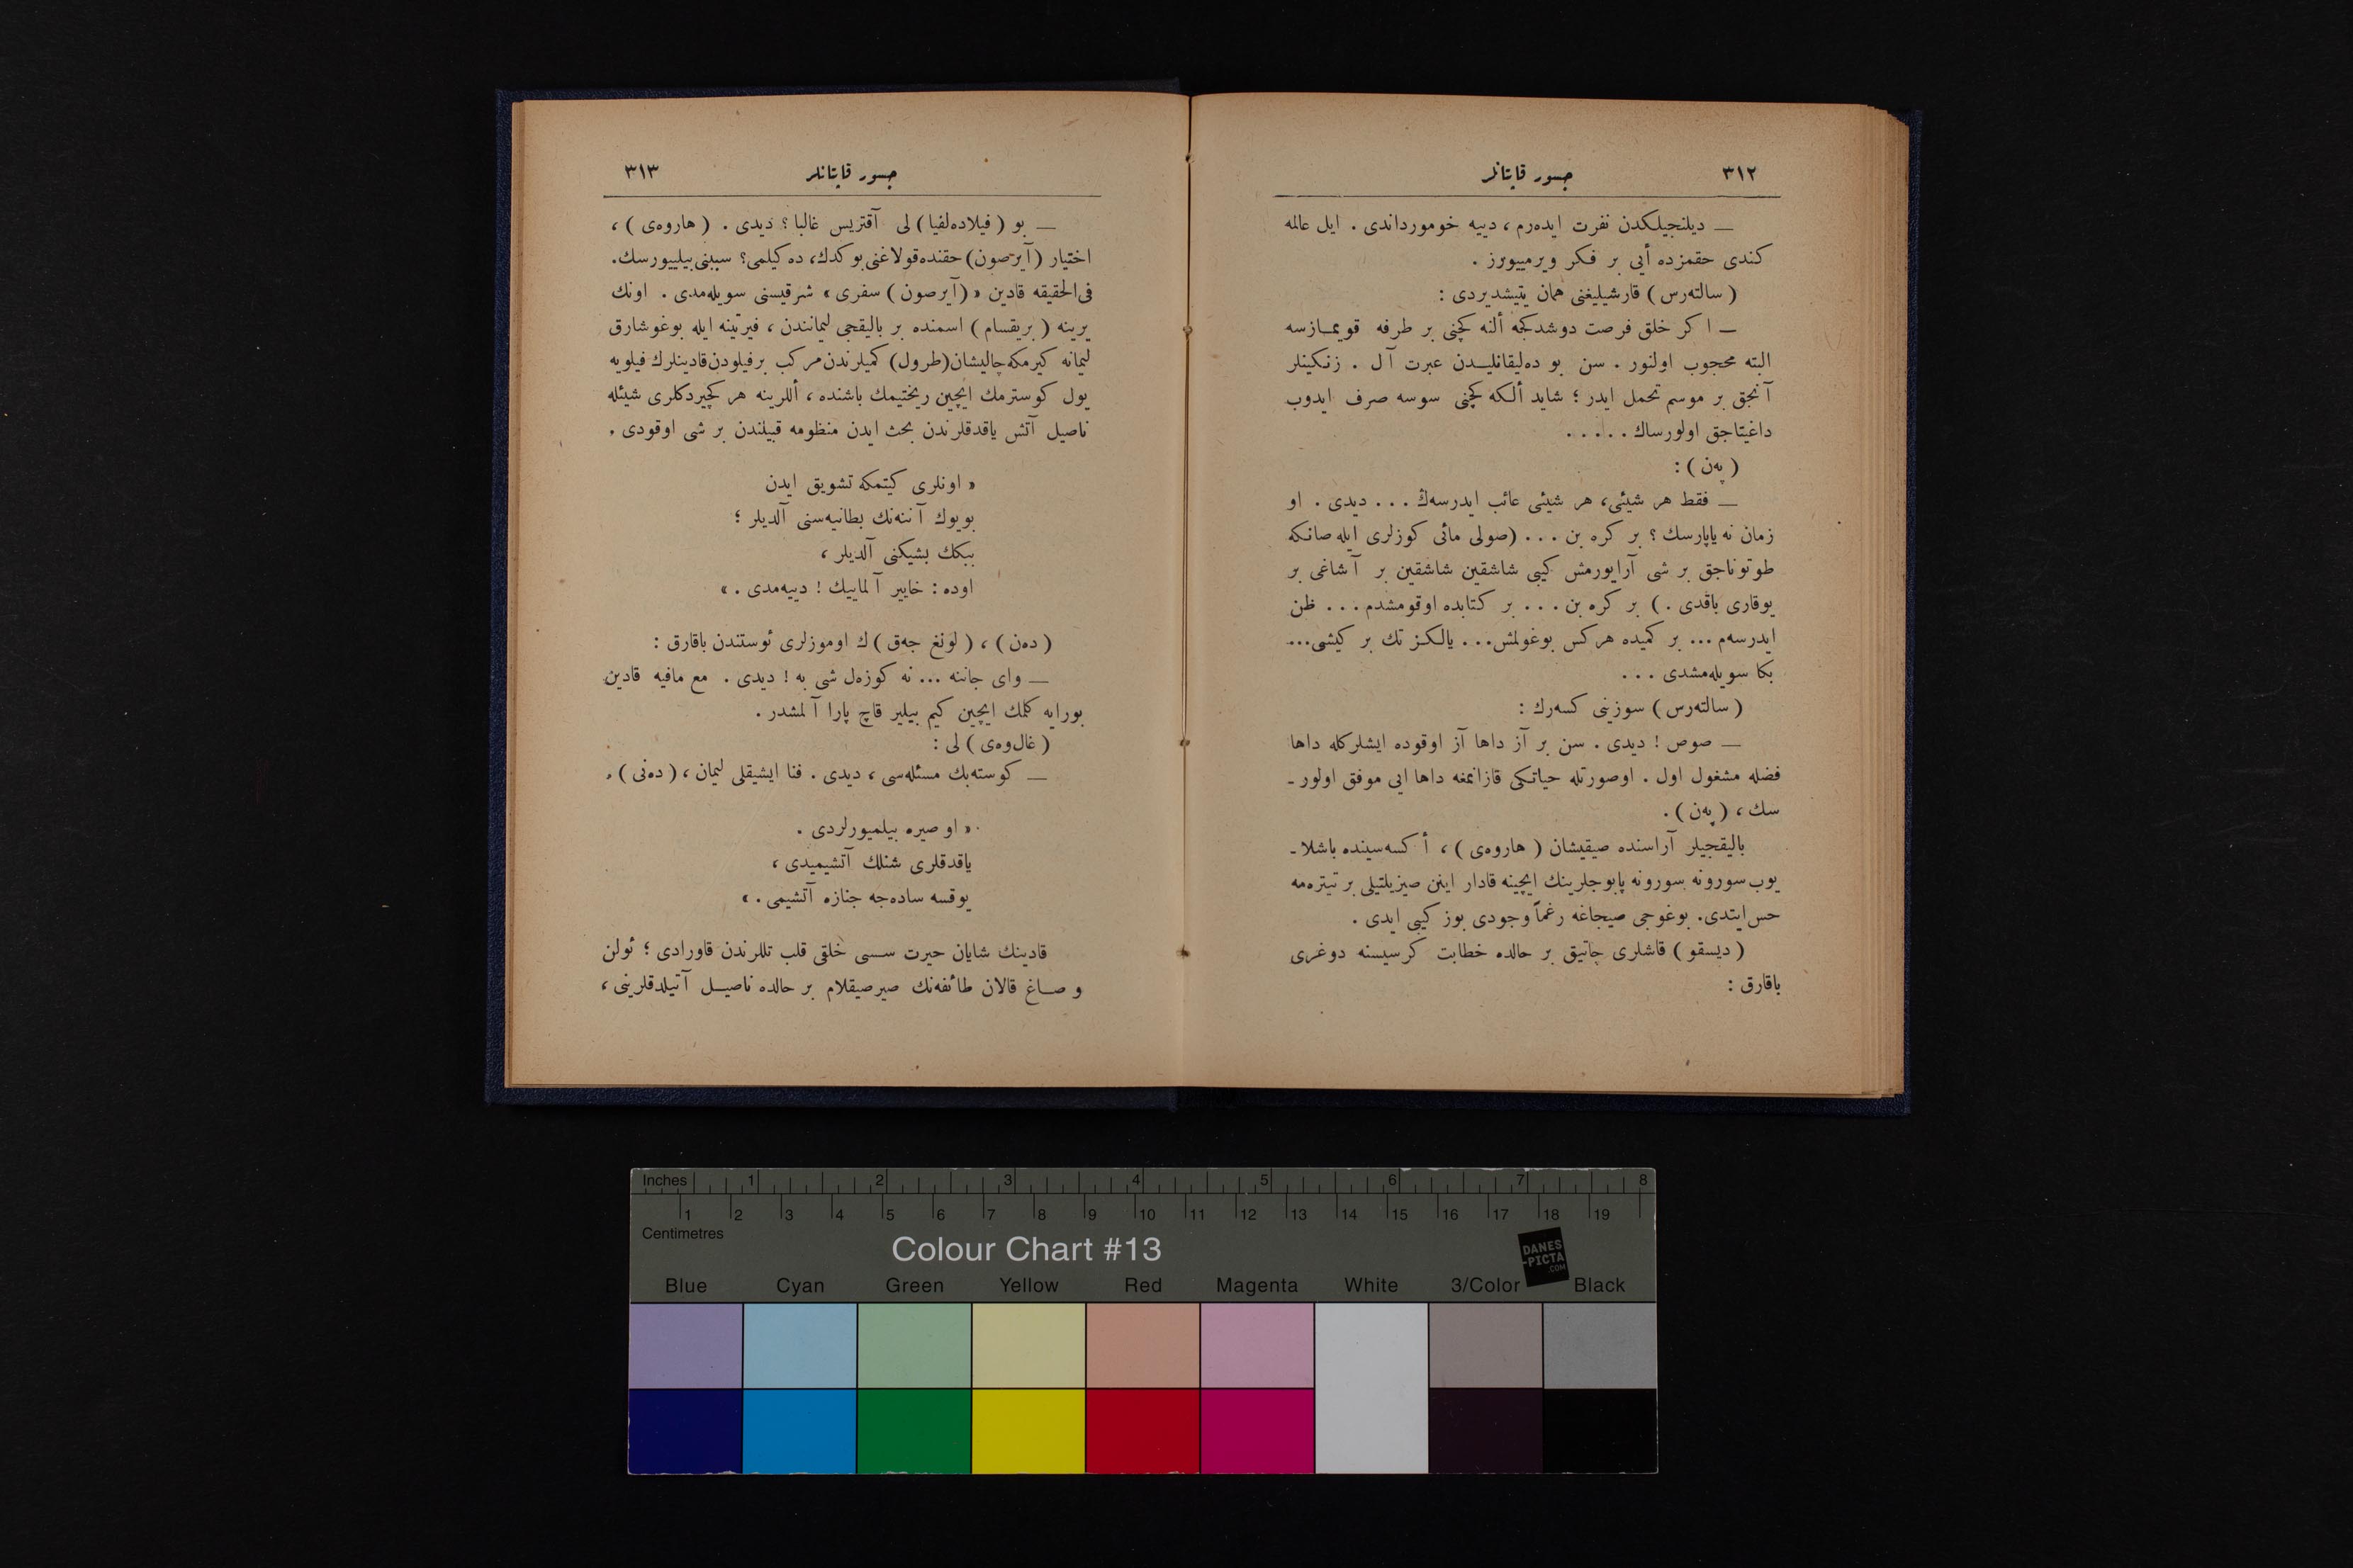 ٣١٢
جسور قاپتانلر
— ديلنجيلكدن نفرت ايده‌رم ، دييه خوموردا‌ندى . ايل عالمه
كندى حقمزده أيى بر فكر ويرمييورز .
( سالته‌رس ) قارشيليغنى همان يتيشديردى :
— ا كر خلق فرصت دوشدكجه ألنه كچنى بر طرفه قويمـازسه
البته محجوب اولنور . سن بو ده‌ليقانليـدن عبرت آل . زنكينلر
آنجق بر موسم تحمل ايدر ؛ شايد ألكه كچنى سوسه صرف ايدوب
داغيتاجق اولورساك . . . . .
( په‌ن ) :
— فقط هر شيئى، هر شيئى عائب ايدرسه‌ڭ . . . ديدى . او
زمان نه ياپارسك ؟ بر كره بن . . . (صولى مائى كوزلرى ايله صانكه
طوتوناجق بر شى آرايورمش كيبى شاشقين شاشقين بر آشاغى بر
يوقارى باقدى . ) بر كره بن . . . بر كتابده اوقومشدم . . . ظن
ايدرسه‌م ... بر كميده هركس بوغولمش... يالكـز تك بر كيشى...
بكا سويله‌مشدى . . .
( سالته‌رس ) سوزينى كسه‌رك :
— صوص ! ديدى . سن بر آز داها آز اوقوده ايشلركله داها
فضله مشغول اول . اوصورتله حياتكى قازانمغه داها ايى موفق اولور ـ
سك ، ( په‌ن ) .
باليقجيلر آراسنده صيقيشان ( هاروه‌ى ) ، أكسه‌سينده باشلا ـ
يوب سورونه سورونه پابوجلرينك ايچينه قادار اينن صيزيلتيلى بر تيتره‌مه
حس ايتدى. بوغوجى صيجاغه رغماً وجودى بوز كيبى ايدى .
( ديسقو ) قاشلرى چاتيق بر حالده خطابت كرسيسنه دوغرى
باقارق :
جسور قاپتانلر
٣١٣
— بو ( فيلاده‌لفيا ) لى آقتريس غالبا ؟ ديدى . ( هاروه‌ى ) ،
اختيار ( آيرصون) حقنده قولاغنى بوكدك، ده كيلمى؟ سببنى بيلييورسك.
فى‌الحقيقه قادين « ( آيرصون ) سفرى » شرقيسنى سويله‌مدى . اونك
يرينه ( بريقسام ) اسمنده بر باليقجى ليمانندن ، فيرتينه ايله بوغوشارق
ليمانه كيرمكه چاليشان (طرول) كميلرندن مركب برفيلودن قادينلرك فيلويه
يول كوسترمك ايچين ريختيمك باشنده ، أللرينه هر كچيردكلرى شيئله
ناصيل آتش ياقدقلرندن بحث ايدن منظومه قبيلندن بر شى اوقودى .
« اونلرى كيتمكه تشويق ايدن
بويوك آننه‌نك بطانيه‌سنى آلديلر ؛
ببكك بشيكنى آلديلر ،
اوده : خايير آلماييك ! دييه‌مدى . »
( ده‌ن ) ، ( لونغ جه‌ق ) ك اوموزلرى ئوستندن باقارق :
— واى جاننه ... نه كوزه‌ل شى به ! ديدى . مع مافيه قادين
بورايه كلمك ايچين كيم بيلير قاچ پارا آلمشدر .
( غال‌وه‌ى ) لى :
— كوسته‌بك مسئله‌سى ، ديدى . فنا ايشيقلى ليمان ، ( ده‌نى ) .
« او صيره بيلميورلردى .
ياقدقلرى شنلك آتشيميدى ،
يوقسه ساده‌جه جنازه آتشيمى . »
قادينك شايان حيرت سـسى خلقى قلب تللرندن قاورادى ؛ ئولن
و صـاغ قالان طائفه‌نك صيرصيقلام بر حالده ناصيـل آتيلدقلرينى ،
Inches 1 2 3 4 5 6 7 8
1 2 3 4 5 6 7 8 9 10 11 12 13 14 15 16 17 18 19
Centimetres
Colour Chart #13
DANES
-PICTA
.COM
Blue Cyan Green Yellow Red Magenta White 3/Color Black